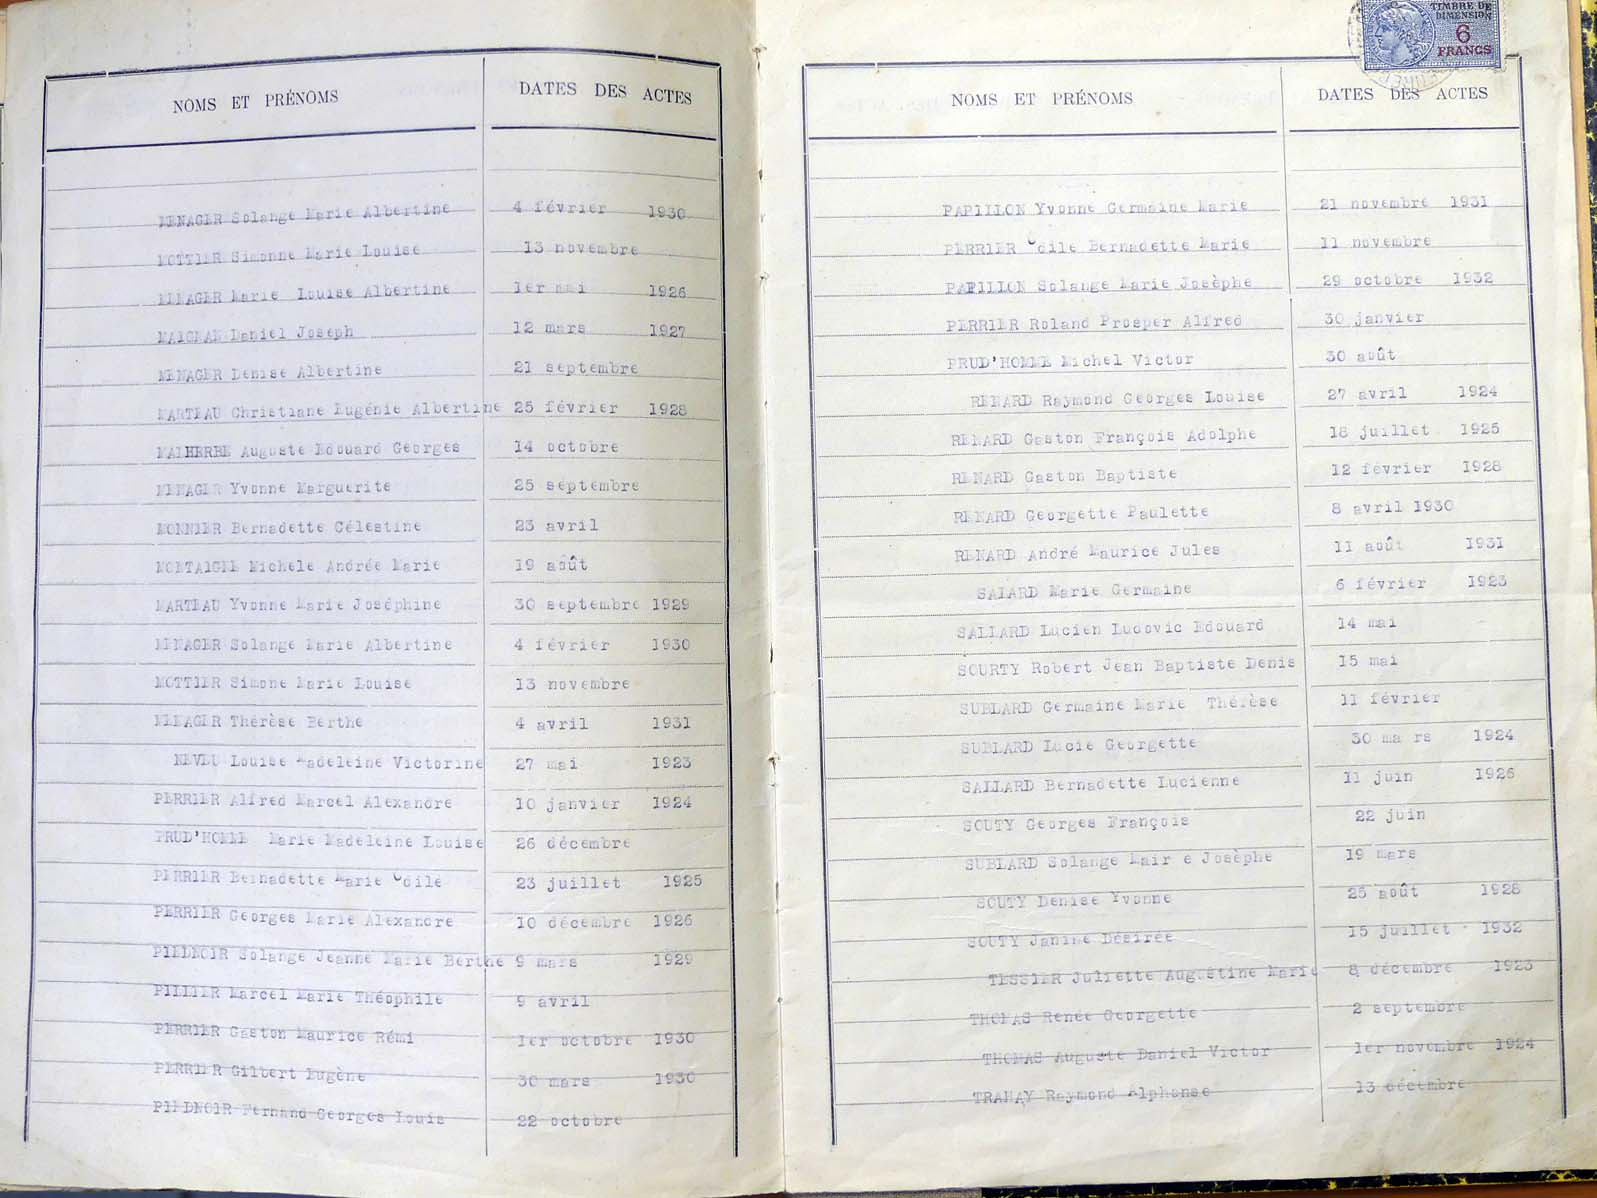 NOMS ET PRÉNOMS DATES DES ACTES
MENAGER Solange Marie Albertine 4 février 1930
MOTTIER Simonne Marie Louise 13 novembre
MENAGER Marie Louise Albertine 1er mai 1926
MAIGNAN Daniel Joseph 12 mars 1927
MENAGER Denise Albertine 21 septembre
MARTEAU Christiane Eugénie Albertine 25 février 1928
MALHERBE Auguste Edouard Georges 14 octobre
MENAGER Yvonne Marguerite 25 septembre
MONNIER Bernadette Célestine 23 avril
MONTAIGNE Michele Andrée Marie 19 août
MARTEAU Yvonne Marie Joséphine 30 septembre 1929
MENAGER Solange Marie Albertine 4 février 1930
MOTTIER Simone Marie Louise 13 novembre
MENAGER Thérèse Berthe 4 avril 1931
NEVEU Louise Madeleine Victorine 27 mai 1923
PERRIER Alfred Marcel Alexandre 10 janvier 1924
PRUD'HOMME Marie Madeleine Louise 26 décembre
PERRIER Bernadette Marie Odile 23 juillet 1925
PERRIER Georges Marie Alexandre 10 décembre 1926
PIEDNOIR Solange Jeanne Marie Berthe 9 mars 1929
PILLIER Marcel Marie Théophile 9 avril
PERRIER Gaston Maurice Rémi 1er octobre 1930
PERRIER Gilbert Eugène 30 mars 1930
PIEDNOIR Fernand Georges Louis 22 octobre
TIMBRE DE
DIMENSION
6
FRANCS
NOMS ET PRÉNOMS DATES DES ACTES
PAPILLON Yvonne Germaine Marie 21 novembre 1931
PERRIER Odile Bernadette Marie 11 novembre
PAPILLON Solange Marie Josèphe 29 octobre 1932
PERRIER Roland Prosper Alfred 30 janvier
PRUD'HOMME Michel Victor 30 août
RENARD Raymond Georges Louise 27 avril 1924
RENARD Gaston François Adolphe 18 juillet 1925
RENARD Gaston Baptiste 12 février 1928
RENARD Georgette Paulette 8 avril 1930
RENARD André Maurice Jules 11 août 1931
SALARD Marie Germaine 6 février 1923
SALLARD Lucien Ludovic Edouard 14 mai
SOURTY Robert Jean Baptiste Denis 15 mai
SUBLARD Germaine Marie Thérèse 11 février
SUBLARD Lucie Georgette 30 ma rs 1924
SALLARD Bernadette Lucienne 11 juin 1926
SOUTY Georges François 22 juin
SUBLARD Solange Mair e Josèphe 19 mars
SOUTY Denise Yvonne 25 août 1928
SOUTY Janine Désirée 15 juillet 1932
TESSIER Juliette Augustine Marie 8 décembre 1923
THOMAS Renée Georgette 2 septembre
THOMAS Auguste Daniel Victor 1er novembre 1924
TRAHAY Raymond Alphonse 13 décembre